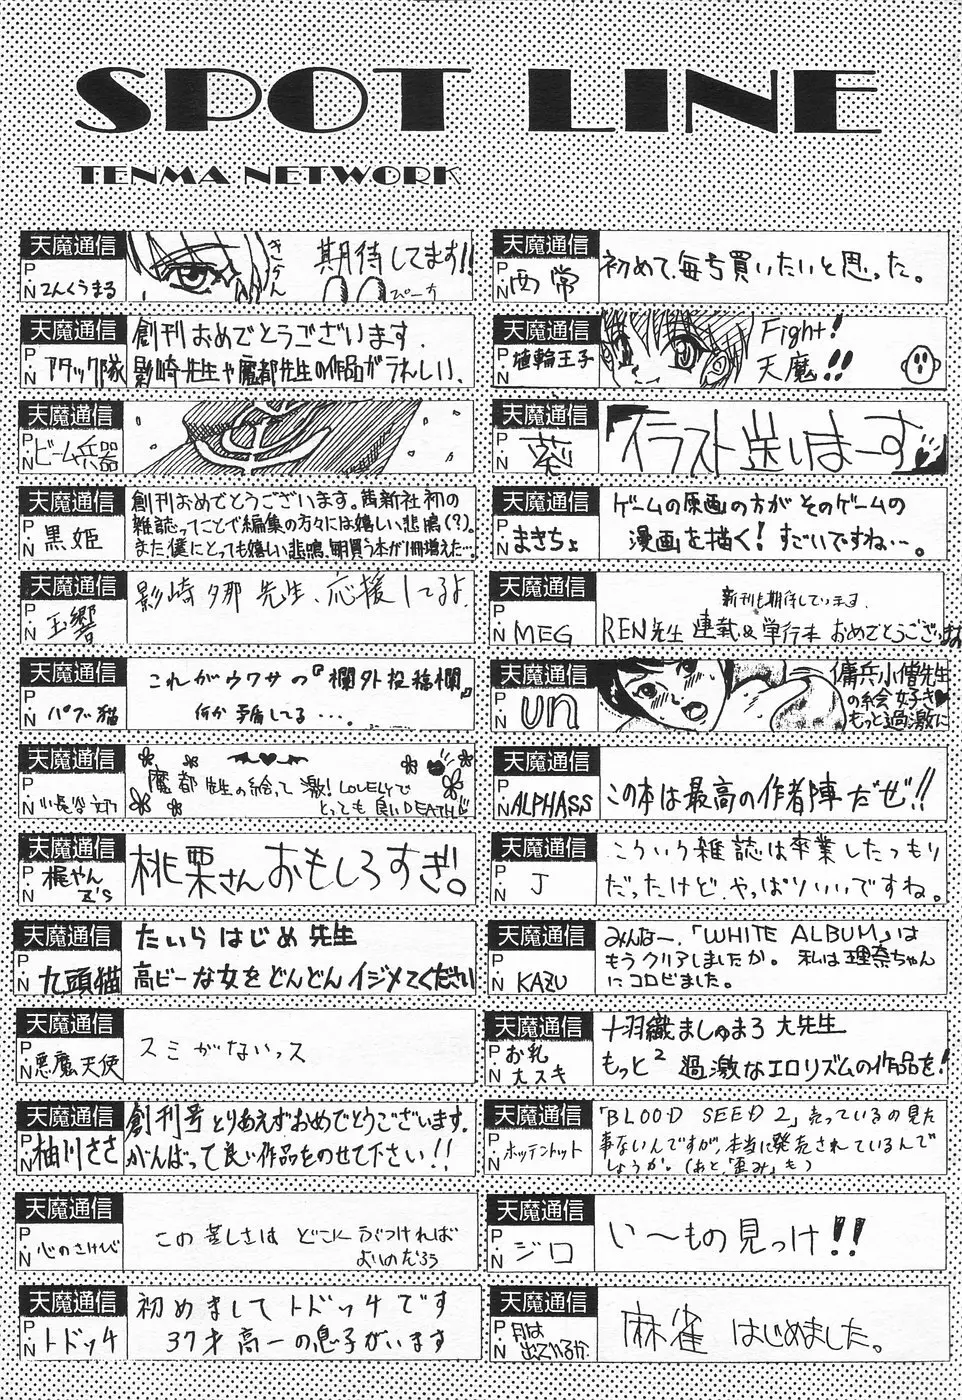 SPOT LINE
TENMA NETWORK
天魔通信
P.N てんくうまる
きかん
期待してます!!
ぴーち
天魔通信
P.N アタック隊
創刊おめでとうございます.
影崎先生や魔都先生の作品がうれしい.
天魔通信
P.N ビーム兵器
天魔通信
P.N 黒姫
創刊おめでとうございます。茜新社初の
雑誌ってことで編集の方々には嬉しい悲鳴(?)。
また僕にとっても嬉しい悲鳴、毎月買う本が1冊増えた…。
天魔通信
P.N 玉響
影崎夕那先生、応援してるよ.
天魔通信
P.N パブ猫
これがウワサの『欄外投稿欄』
何か矛盾してる・・・.
天魔通信
P.N 小長谷
魔都先生の絵って激!LOVELYで
とっても良いDEATH!!
天魔通信
P.N 梶やんZ's
桃栗さんおもしろすぎ。
天魔通信
P.N 九頭猫
たいらはじめ先生
高ビーな女をどんどんイジメてください
天魔通信
P.N 悪魔天使
スミがないっス
天魔通信
P.N 柚川ささ
創刊号とりあえずおめでとうございます.
がんばって良い作品をのせて下さい!!
天魔通信
P.N 心のさけび
この苦しさはどこにぶつければ
よいのだろう
天魔通信
P.N トドッチ
初めましてトドッチです
37才高一の息子がいます
天魔通信
P.N 西常
初めて、毎号買いたいと思った。
天魔通信
P.N 埴輪王子
Fight!
天魔!!
天魔通信
P.N 葵
イラスト送りまーす
天魔通信
P.N まきちょ
ゲームの原画の方がそのゲームの
漫画を描く!すごいですね…。
天魔通信
P.N MEG
新刊も期待しています.
REN先生 連載&単行本 おめでとうございます
天魔通信
P.N un
傭兵小僧先生
の絵好き♥
もっと過激に
天魔通信
P.N ALPHASS
この本は最高の作者陣だぜ!!
天魔通信
P.N J
こういう雑誌は卒業したつもり
だったけど、やっぱりいいですね。
天魔通信
P.N KAZU
みんなー、「WHITE ALBUM」は
もうクリアしましたか。私は理奈ちゃん
にコロビました。
天魔通信
P.N お乳大スキ
十羽織ましゅまろ 大先生
もっと² 過激なエロリズムの作品を!
天魔通信
P.N ホッテントット
「BLOOD SEED 2」売っているの見た
事ないんですが、本当に発売されているんで
しょうか。(あと「歪み」も)
天魔通信
P.N ジロ
い〜もの見っけ!!
天魔通信
P.N 月は出ているか
麻雀はじめました。